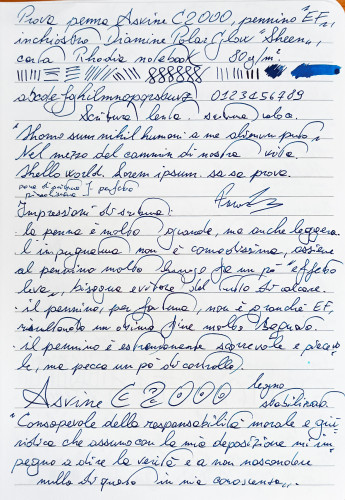 Prova penna Asvine C2000, pennino "EF",
inchiostro Diamine Polar Glow "Sheen",
carta Rhodia notebook 80g/m²
abcdefghilmnopqrstuvz 0123456789
Scrittura lenta. scrittura veloce.
"Homo sum nihil humani a me alienum puto"
Nel mezzo del cammin di nostra vita.
Hello world. Lorem ipsum. sa sa prova.
prova di scrittura perfetta
Impressioni di scrittura:
la penna è molto grande, ma anche leggera.
L'impugnatura non è comodissima, assieme
al pennino molto lungo fa un po' "effetto
leva", bisogna evitare del tutto di calcare.
il pennino, per fortuna, non è granché EF,
risultando un ottimo fine molto bagnato.
il pennino è estremamente scorrevole e piacevo-
le, ma pecca un po' di controllo.
Asvine C2000 legno
stabilizzato
"Consapevole della responsabilità morale e giu-
ridica che assumo con la mia deposizione mi im-
pegno a dire la verità e a non nascondere
nulla di quanto in mia conoscenza".